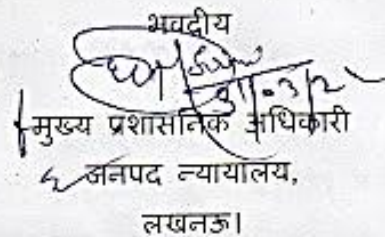 भवदीय
मुख्य प्रशासनिक अधिकारी
जनपद न्यायालय,
लखनऊ।